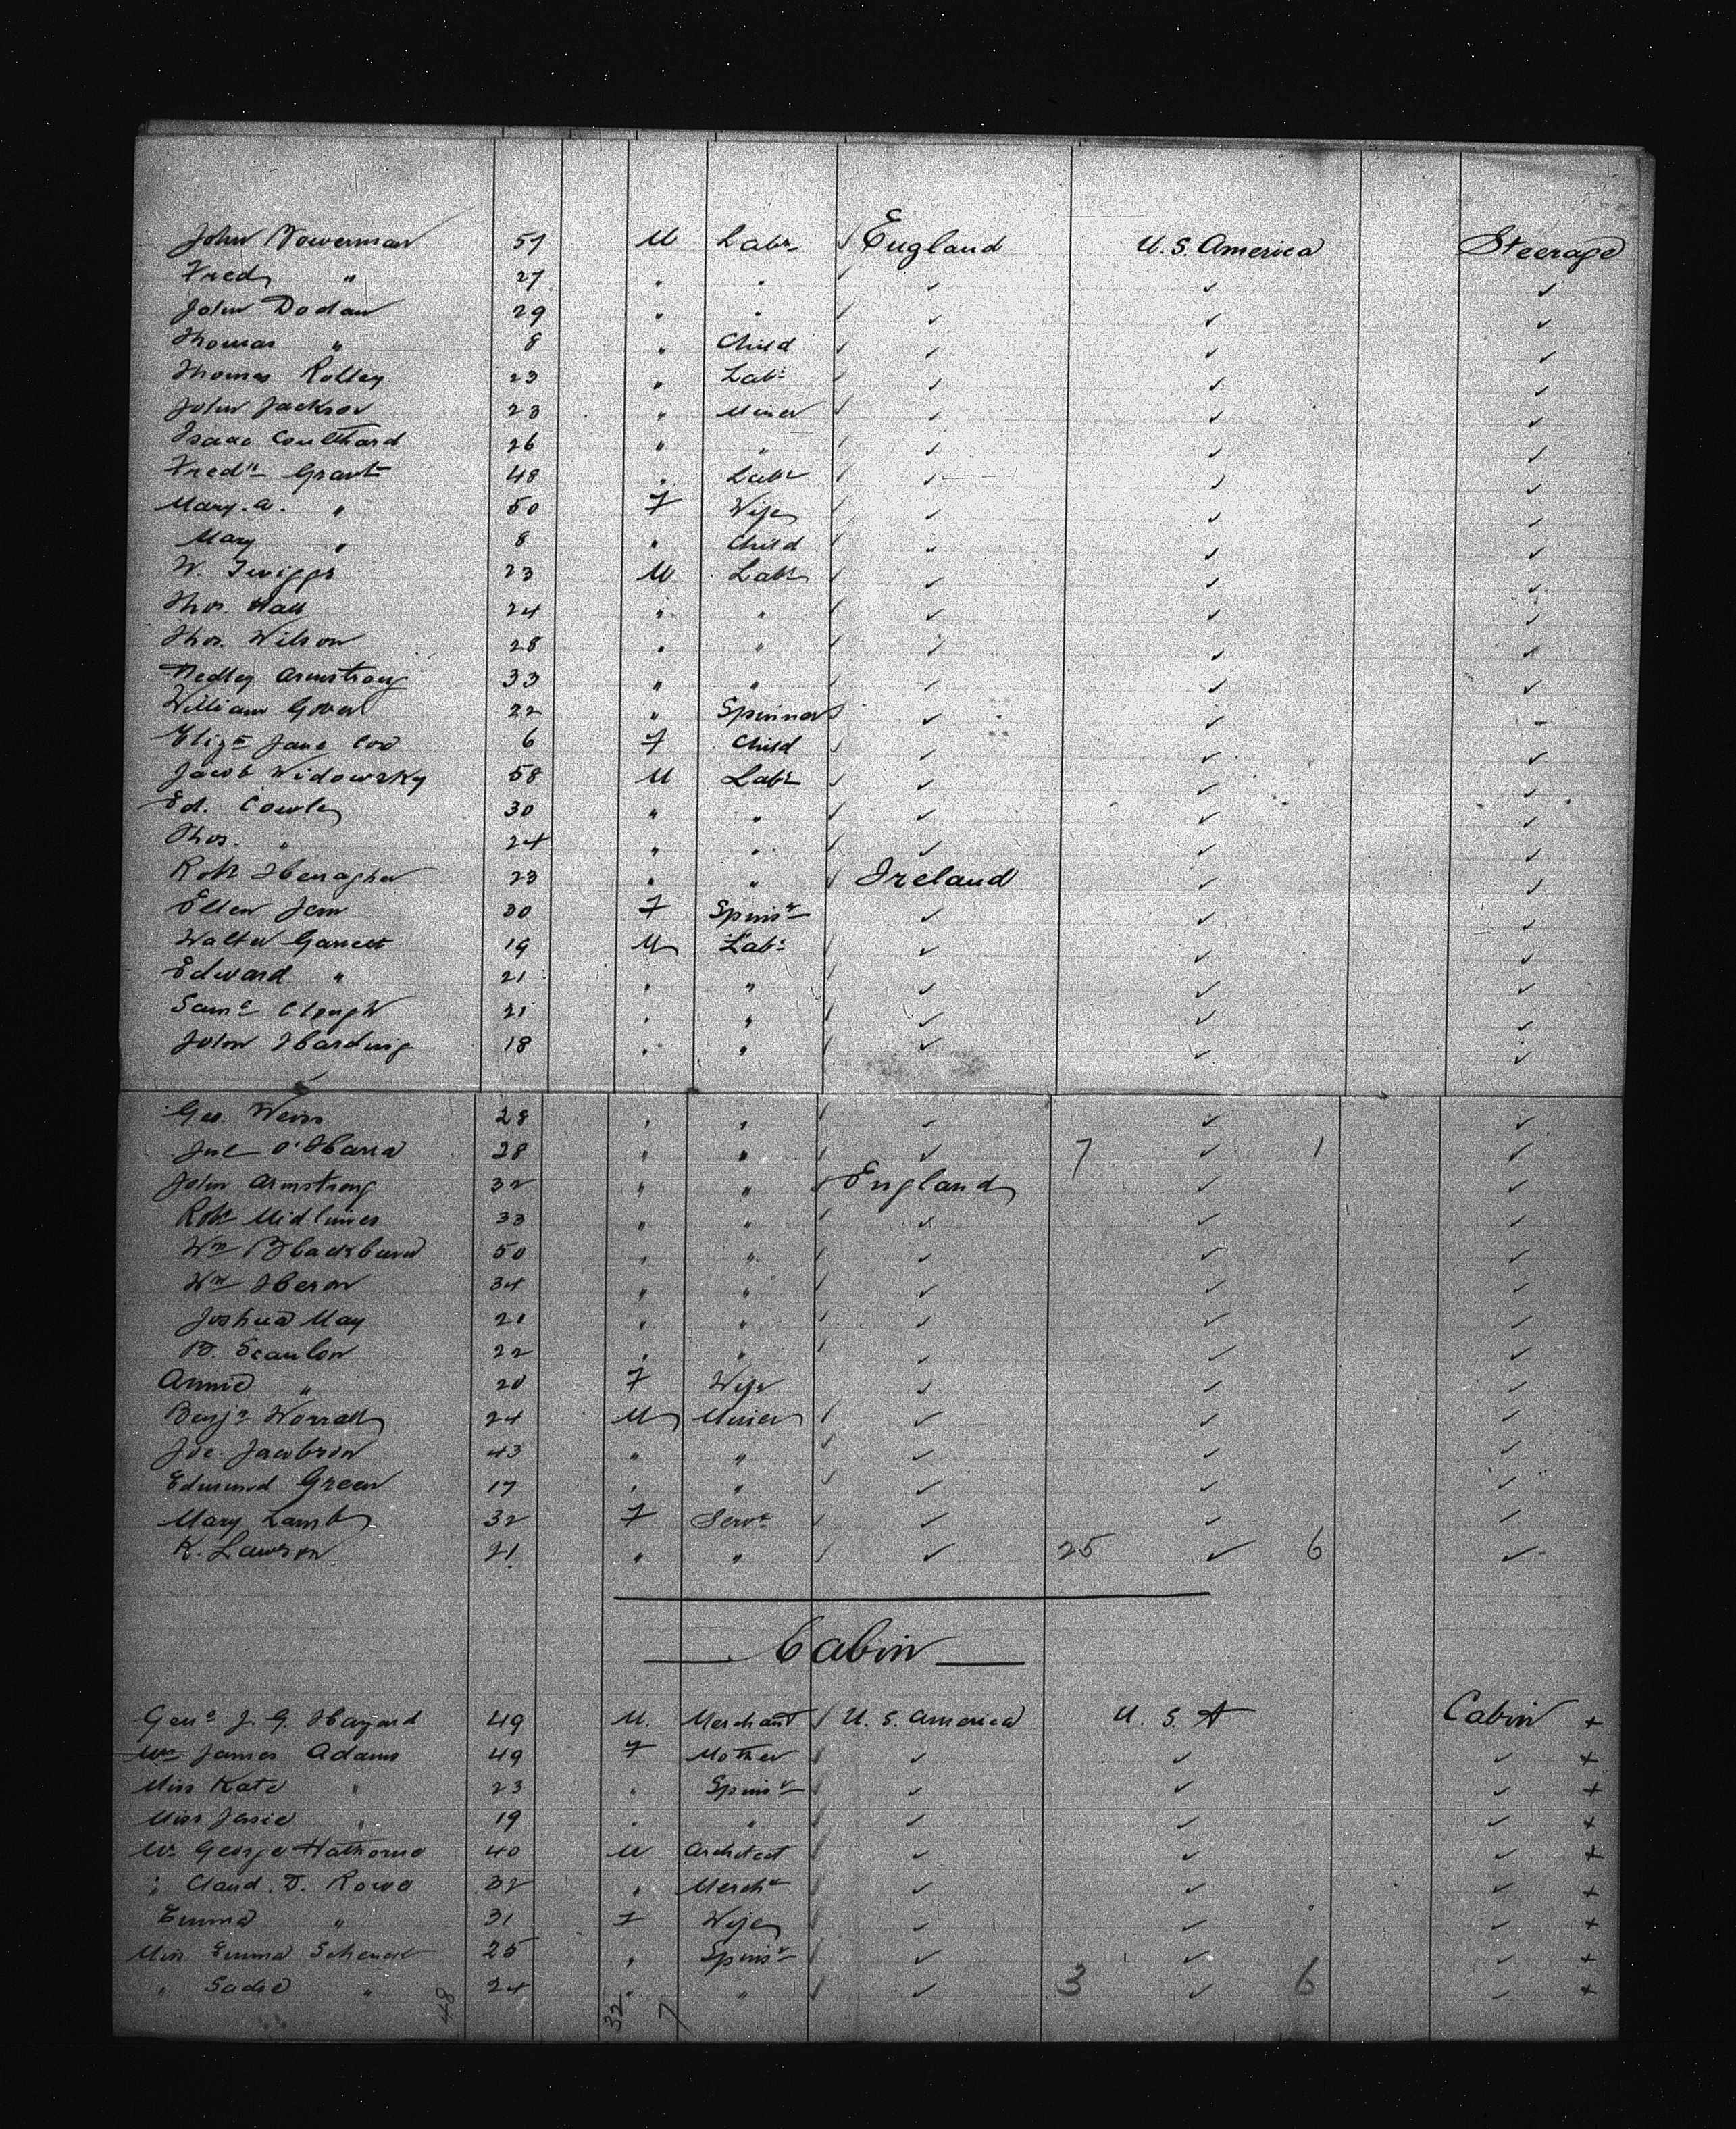 John Bowerman 57 M Labr England U.S. America Steerage
Fred " 27 " " ✓ ✓ ✓
John Dodan 29 " " ✓ ✓ ✓
Thomas " 8 " Child ✓ ✓ ✓
Thomas Rolley 23 " Labr ✓ ✓ ✓
John Jackson 23 " Miner ✓ ✓ ✓
Isaac Coulthard 26 " " ✓ ✓ ✓
Fredk Grant 48 " Labr ✓ ✓ ✓
Mary. A. " 50 F Wife ✓ ✓ ✓
Mary " 8 " Child ✓ ✓ ✓
W. Twiggs 23 M Labr ✓ ✓ ✓
Thos. Hall 24 " " ✓ ✓ ✓
Thos. Wilson 28 " " ✓ ✓ ✓
Medley Armstrong 33 " " ✓ ✓ ✓
William Gover 22 " Spinner ✓ ✓
Elizth Jane Cox 6 F Child ✓ ✓ ✓
Jacob Widowsky 58 M Labr ✓ ✓ ✓
Ed. Cowley 30 " " ✓ ✓ ✓
Thos. " 24 " " ✓ ✓ ✓
Robt Henagher 23 " " Ireland ✓ ✓
Ellen 30 F Spinsr ✓ ✓ ✓
Walter Garrett 19 M Labr ✓ ✓ ✓
Edward " 21 " " ✓ ✓ ✓
Saml Clough 21 " " ✓ ✓ ✓
John Harding 18 " " ✓ ✓ ✓
Geo. Weiss 28 " " ✓ ✓ ✓
O'Hara 28 " " ✓ 7 ✓ 1 ✓
John Armstrong 32 " " England ✓ ✓
Robt 33 " " ✓ ✓ ✓
Wm Blackburn 50 " " ✓ ✓ ✓
Wm Heron 34 " " ✓ ✓ ✓
Joshua May 21 " " ✓ ✓ ✓
B. Scanlon 22 " " ✓ ✓ ✓
Annie " 20 F Wife ✓ ✓ ✓
Benjn Worrall 24 M Miner ✓ ✓ ✓
Joe. Jacobson 43 " " ✓ ✓ ✓
Edmund Green 17 " " ✓ ✓ ✓
Mary Lamb 32 F Servt ✓ ✓ ✓
K. Lawson 21 " " ✓ 25 ✓ 6 ✓
Cabin
Genl J. G. Hazard 49 M. Merchant U.S. America U.S.A Cabin +
Mrs James Adams 49 F Mother ✓ ✓ ✓ +
Miss Kate " 23 " Spinsr ✓ ✓ ✓ +
Miss Josie " 19 " " ✓ ✓ ✓ +
Mr George Hathorne 40 M Architect ✓ ✓ ✓ +
" Claud. D. Rowe 32 " Mercht ✓ ✓ ✓ +
Emma " 31 F Wife ✓ ✓ ✓ +
Miss Emma Schenck 25 " Spinsr ✓ ✓ ✓ +
" Sadie " 24 " " ✓ 3 ✓ 6 ✓ +
48 32 7